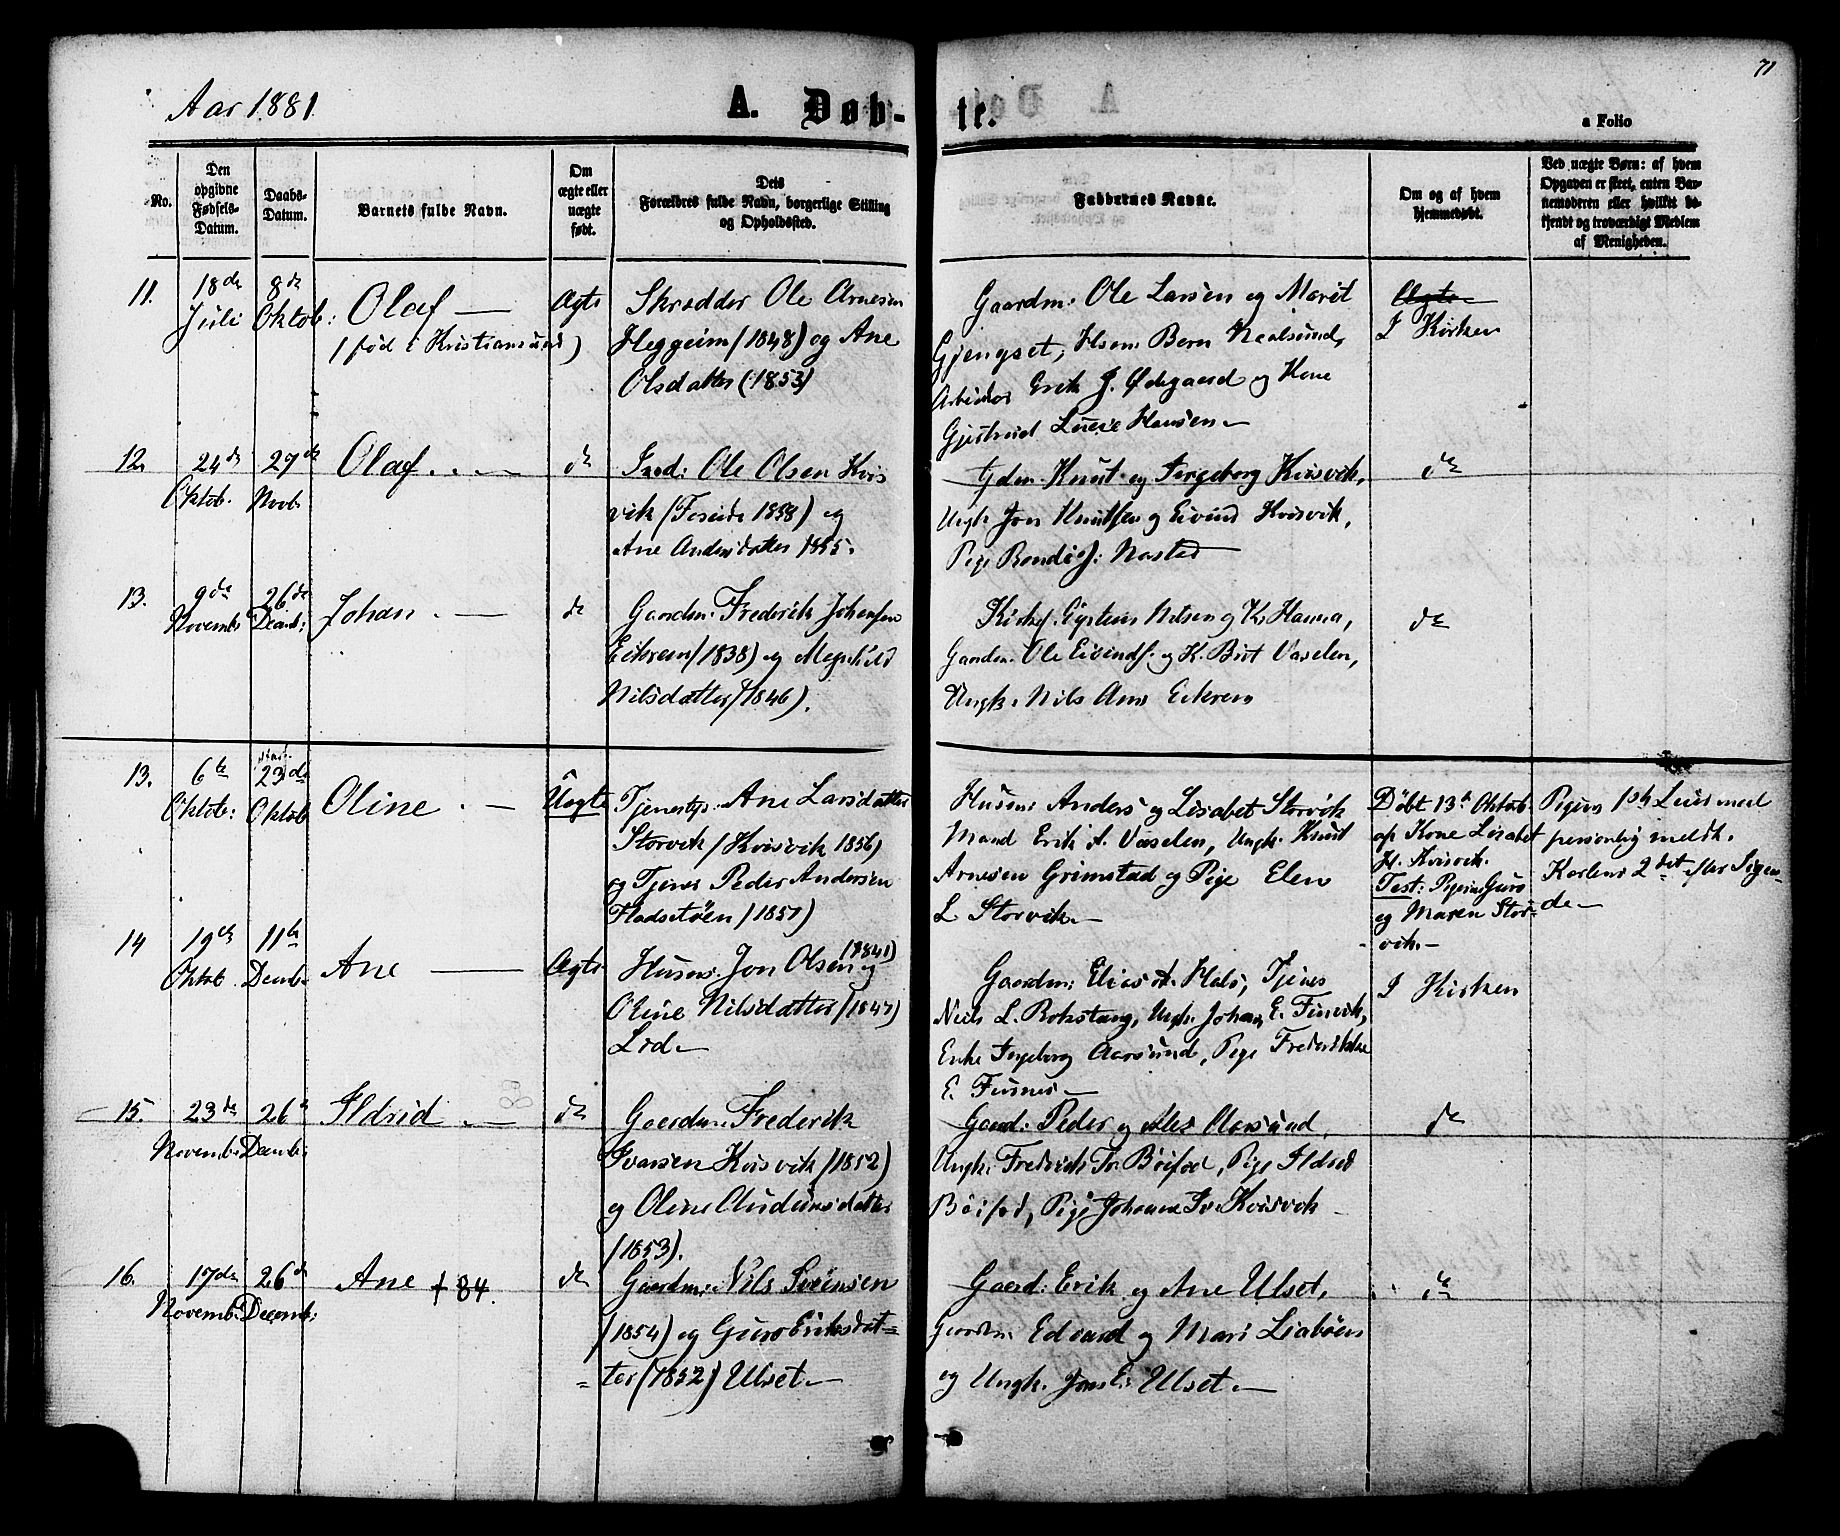 71
Aar 1881.
A. Døb-
te.
a Folio
No.
Den opgivne Fødsels-Datum.
Daabs-Datum.
Barnets fulde Navn.
Om ægte eller uægte født.
Dets Forældres fulde Navn, borgerlige Stilling og Opholdssted.
Faddernes Navne.
Om og af hvem hjemmedøbt.
Ved uægte Børn: af hvem Opgaven er skeet, enten Barnemoderen eller hvilket bekjendt og troværdigt Medlem af Menigheden.
11.
18de Juli
8de Oktob:
Olaf —
(fød i Kristiansund)
Ægte
Skrædder Ole Arnesen
Heggeim (1848) og Ane
Olsdatter (1853)
Gaardm: Ole Larsen og Marit
Gjengset, Husm: Bern
Arbeider Erik J. Ødegaard og Kone
Hansen.—
Ægte
I Kirken
12.
24de Oktob.
29de Novb.
Olaf. . —
do
Ole Olsen Kvis
vik (1858) og
Ane Andersdatter 1855.
Gdm. Knut og Ingeborg Kvisvik,
Ungk. Jon Knutsen og Eivind Kvisvik,
Pige
do
13.
9de Novemb:
26de Decemb:
Johan. —
do
Gaardm: Frederik Johansen
Eikrem (1838) og
Nilsdatter (1846).
Nilsen og K. Hanna,
Gaardm. Ole Eivinds. og K. Brit Vaselen,
Ungk. Nils Eikrem
do
13.
6te Oktob:
23de Oktob
Oline. —
Uægte
Tjenestp. Ane Larsdatter
Storvik (Kvisvik 1856)
og Tjener Peder Andersen
Fladsetøen (1857)
Husm: Anders og Lisabet Storvik
Mand Erik A. Vaselen, Ungk. Knut
Arnesen Grimstad og Pige Elen
L. Storvik.—
Døbt 13de Oktob.
af Kone Lisabet
H. Kvisvik.
Test: Pigerne Guro
og Maren Stor=
vik.—
Pigens 1ste Leiermaal
personlig meldt.
Karlens 2det efter Sigen=
de.—
14
19de Oktob.
11te Decemb.
Ane —
Ægte
Husm. Jon Olsen (1841) og
Oline Nilsdatter (1847)
Lod.—
Gaardm: Elias A. Hals, Tjener
Niels L. Rokstang, Ungk. Johan E.
Enke Ingeborg Aarsund, Pige Frederikke
E. Fusnes.—
I Kirken
15.
23de Novemb:
26de Decemb:
Ildrid. —
do
Gaardm: Frederik
Ivarsen Kvisvik (1852)
og Oline Audunsdatter
(1853).
Gaard: Peder og Ales Aarsund,
Ungk. Frederik Bøifod, Pige Ildrid
Bøifod, Pige Johanna Iv. Kvisvik
do
16.
17de Novemb:
26de Decemb:
Ane † 84.
do
Gaardm: Nils Svensen
(1854) og Guro Eriksdat=
=ter (1852) Ulset.—
Gaard: Erik og Ane Ulset,
Gaardm: Edvard og Mari Liabøen
og Ungk. Ulset.—
do